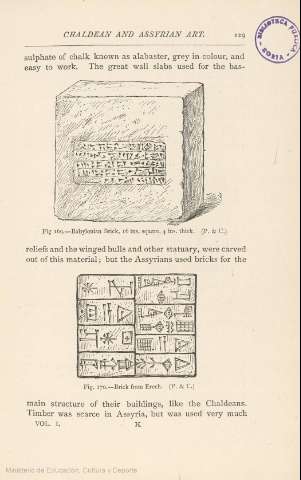 CHALDEAN AND ASSYRIAN ART. 129
BIBLIOTECA PÚBLICA
SORIA
sulphate of chalk known as alabaster, grey in colour, and
easy to work. The great wall slabs used for the bas-
Fig 169.—Babylonian Brick, 16 ins. square. 4 ins. thick. (P. & C.)
reliefs and the winged bulls and other statuary, were carved
out of this material; but the Assyrians used bricks for the
Fig. 170.—Brick from Erech. (P. & C.)
main structure of their buildings, like the Chaldeans.
Timber was scarce in Assyria, but was used very much
VOL. I. K
Ministerio de Educación, Cultura y Deporte